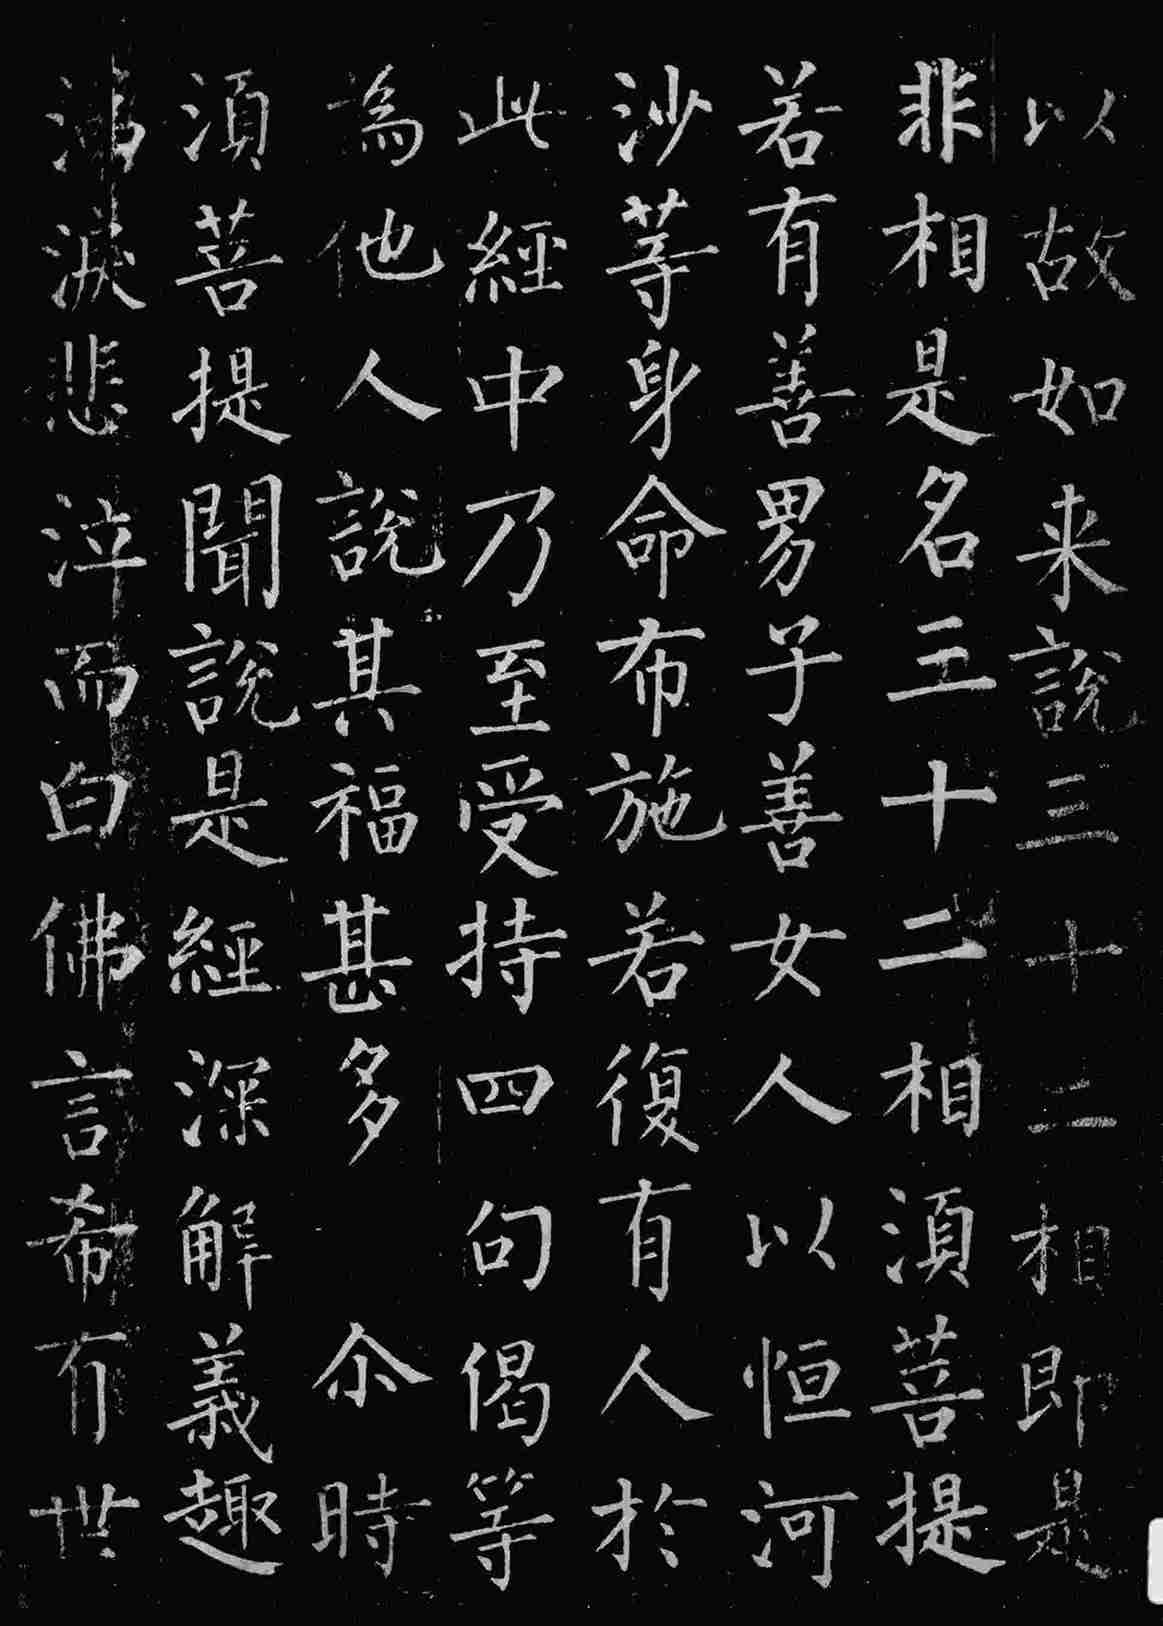 以故如来說三十二相即是
非相是名三十二相湏菩提
若有善男子善女人以恒河
沙等身命布施若復有人於
此經中乃至受持四句偈等
為他人說其福甚多 尒時
湏菩提聞說是經深解義趣
涕淚悲泣而白佛言希有世